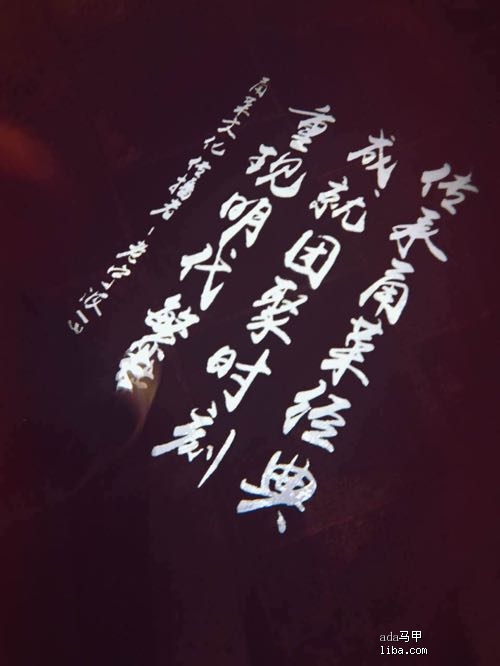 传承甬菜经典
成就团聚时刻
重现明代繁盛
甬菜文化传播者一
ada马甲
liba.com